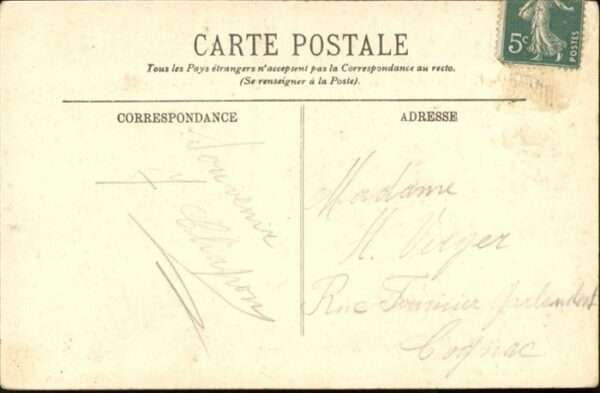 5c
POSTES
CARTE POSTALE
Tous les Pays étrangers n'acceptent pas la Correspondance au recto.
(Se renseigner à la Poste).
CORRESPONDANCE
ADRESSE
Souvenir
Madame
Verger
Rue Fournier
Cognac